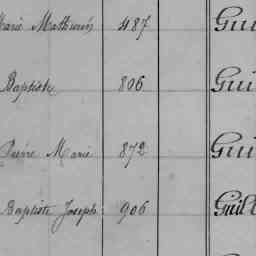 Marie Mathurin 487 Gui
Baptiste 806 Gui
Pierre Marie 872 Gui
Baptiste Joseph 906 Guil